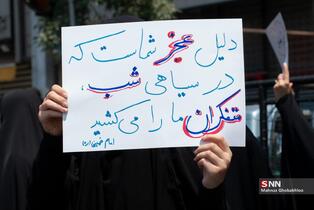 دلیل عجز شماست که
در سیاهی شب،
متفکران ما را می‌کشید
امام خمینی (ره)
SNN
Mahnaz Ghobakhloo